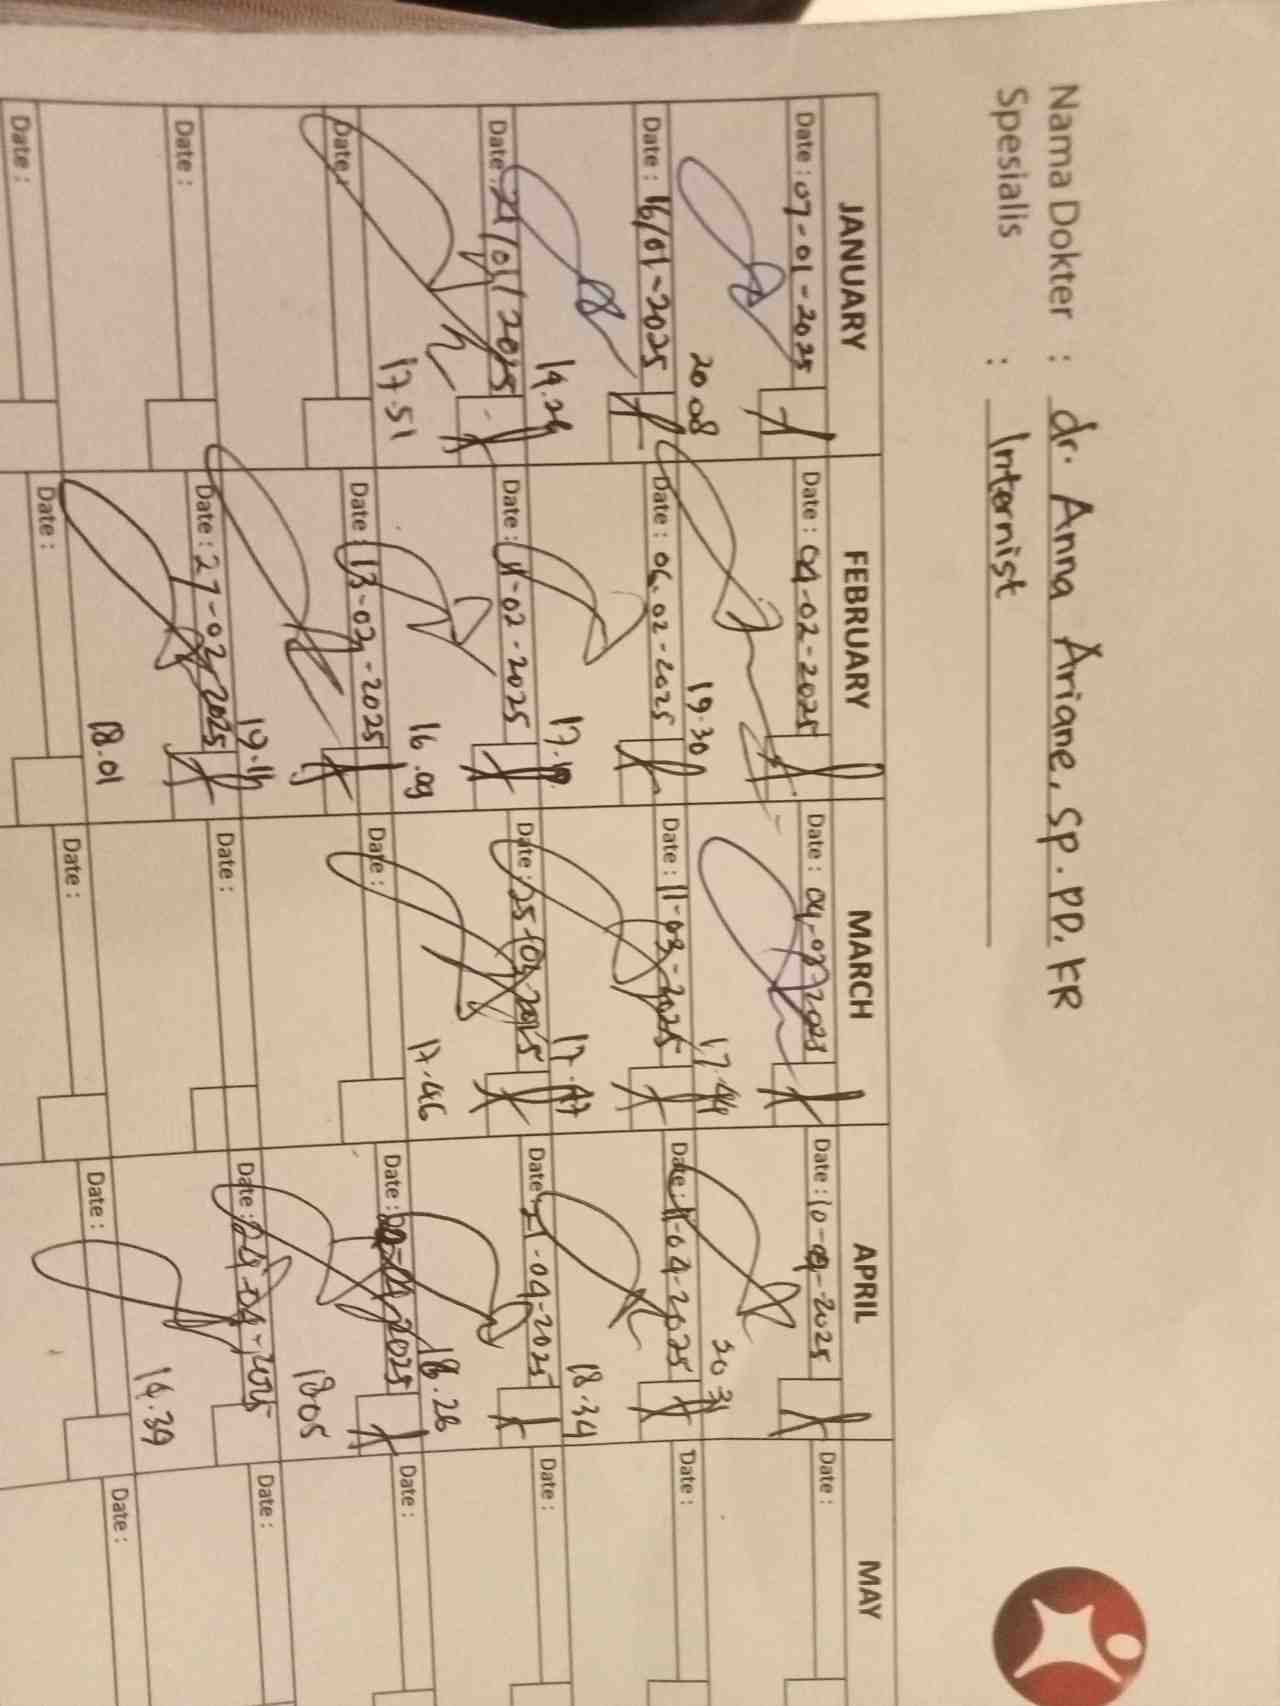 Nama Dokter : dr. Anna Ariane, Sp. PD, KR
Spesialis : Internist
JANUARY FEBRUARY MARCH APRIL MAY
Date : 07-01-2025 Date : 04-02-2025 Date : 04-03-2025 Date : 10-04-2025 Date :
20.08 19.30 17.44 20.31
Date : 16/01-2025 Date : 06.02-2025 Date : 11-03-2025 Date : 11-04-2025 Date :
17.47 18.34
Date : 21/01/2025 Date : 11-02-2025 Date : 25-03-2025 Date : 04-2025 Date :
17.51 16.09 17.46 18.26
Date : Date : 13-02-2025 Date : Date : 2025 Date :
18.05
Date : Date : 27-02-2025 Date : Date : 24-04-2025 Date :
18.01 14.39
Date : Date : Date : Date : Date :